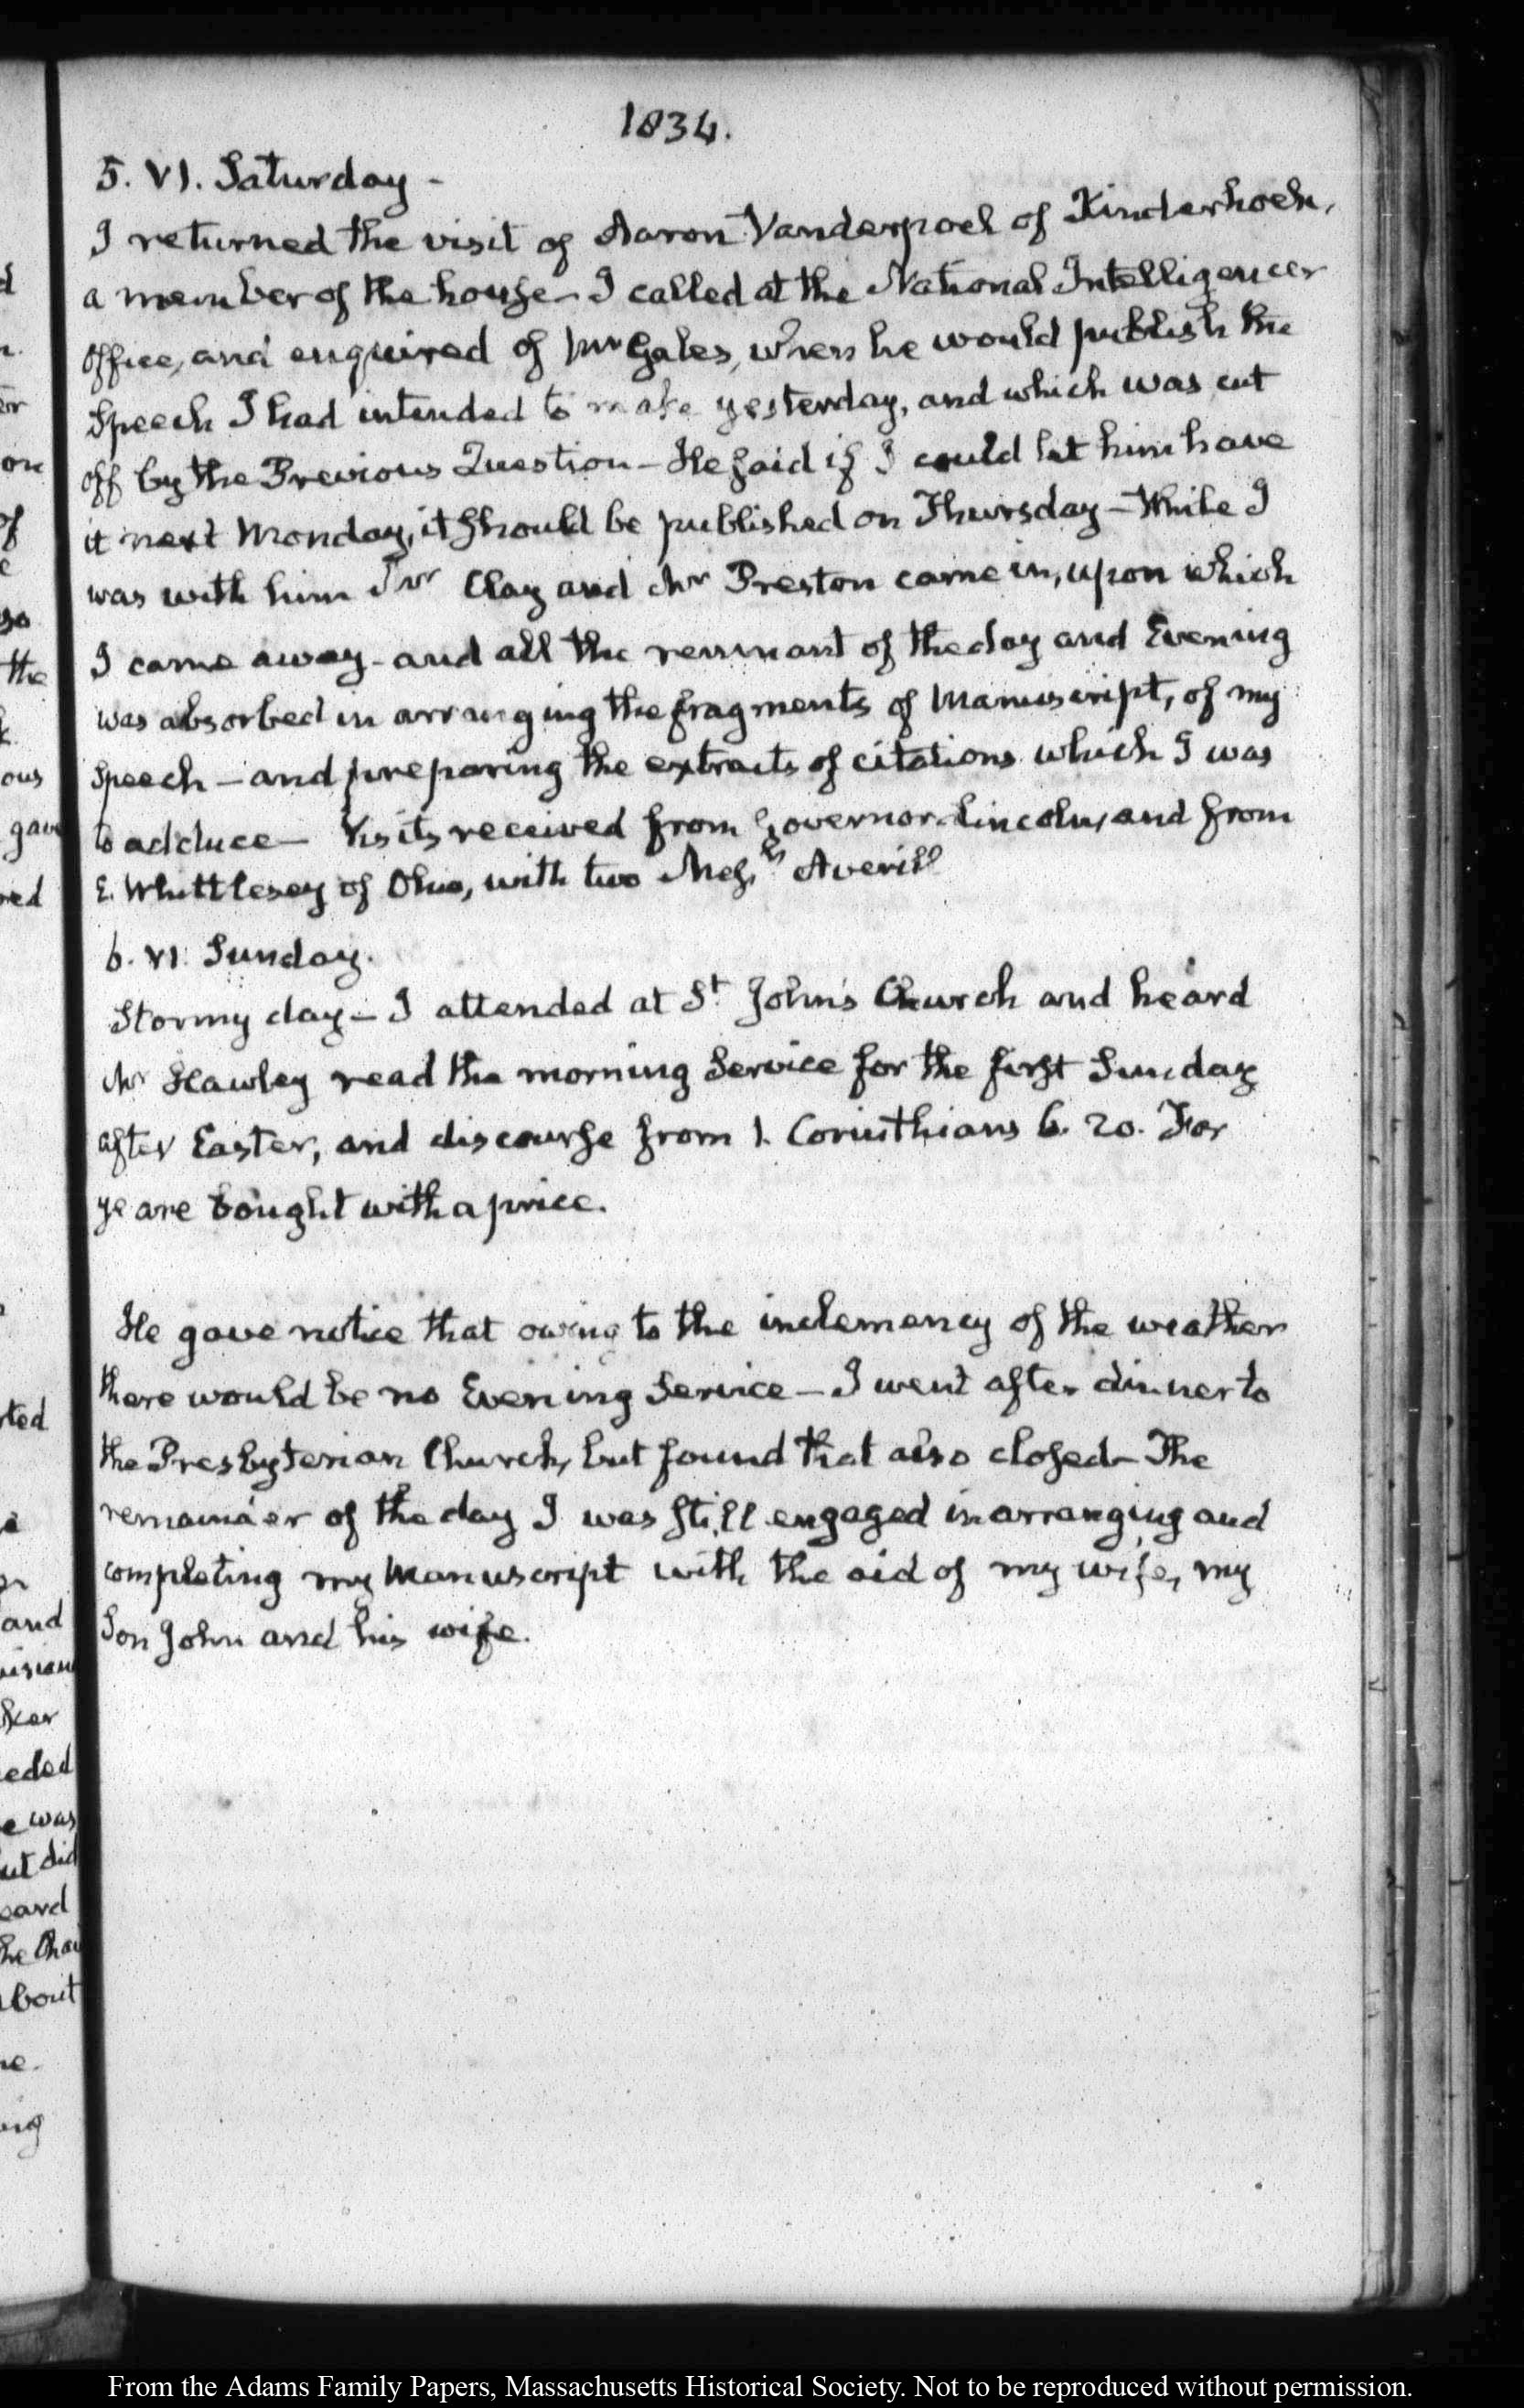 1834.
5. VI. Saturday -
I returned the visit of Aaron Vanderpoel of Kinderhoek,
a member of the house - I called at the National Intelligencer
Office, and enquired of Mr Gales, when he would publish the
Speech I had intended to make yesterday, and which was cut
off by the Previous Question - He said if I could let him have
it next Monday, it should be published on Thursday - While I
was with him Mr Clay and Mr Preston came in, upon which
I came away - and all the remnant of the day and Evening
was absorbed in arranging the fragments of Manuscript, of my
Speech - and preparing the extracts of citations which I was
to adduce - Visits received from Governor Lincoln, and from
E. Whittlesey of Ohio, with two Messrs Averill
6. VI. Sunday.
Stormy day - I attended at St John's Church and heard
Mr Hawley read the morning Service for the first Sunday
after Easter, and discourse from 1. Corinthians 6. 20. For
ye are bought with a price.
He gave notice that owing to the inclemency of the weather
there would be no Evening Service - I went after dinner to
the Presbyterian Church, but found that also closed - The
remainder of the day I was still engaged in arranging and
completing my Manuscript with the aid of my wife, my
Son John and his wife.
the
ous
gave
and
eded
e was
ut did
eard
the Chai
about
From the Adams Family Papers, Massachusetts Historical Society. Not to be reproduced without permission.